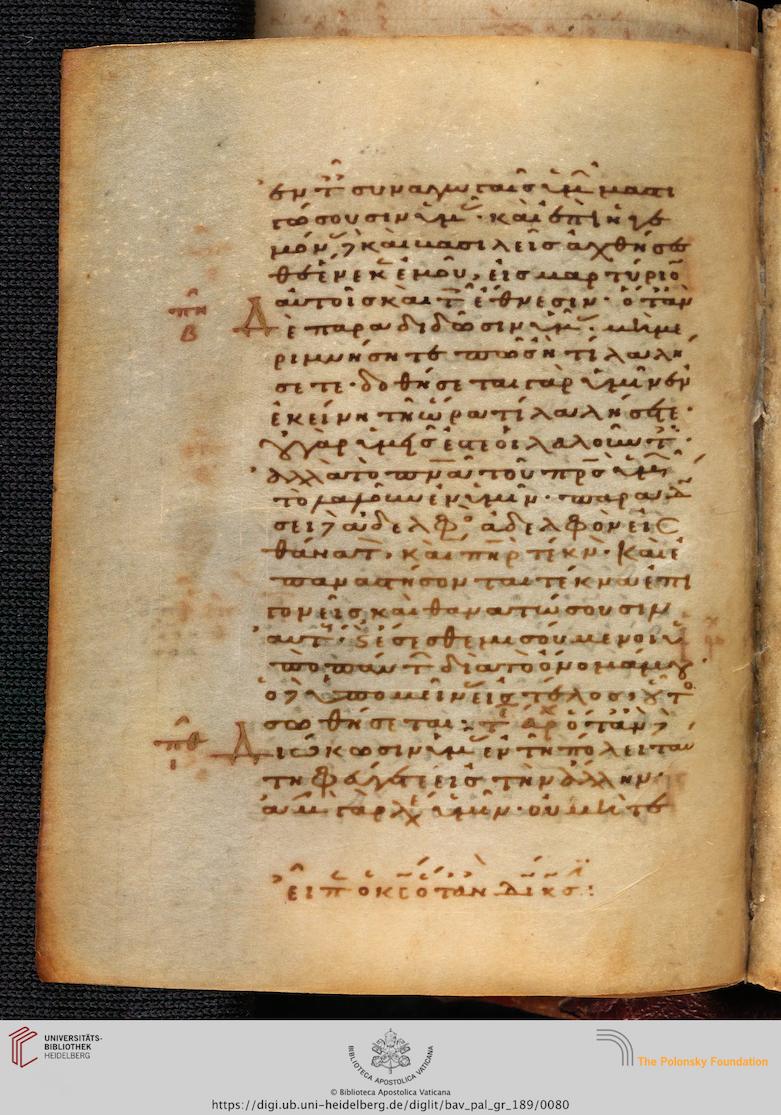 ἐν τ συναγωγαῖς ὑμ μαστι
γώσουσιν ὑμ· καὶ ἐπὶ ἡγε
μόν καὶ βασιλεῖς ἀχθήσε
σθε ἕνεκ ἐμοῦ, εἰς μαρτύριο
αὐτοῖς καὶ τ ἔθνεσιν· ὅταν
πη
β
Δὲ παραδιδῶσιν ὑμ· μὴ με
ριμνήσητε πῶς ἢ τί λαλή
σετε· δοθήσεται γὰρ ὑμῖν ἐν
ἐκείνη τῆ ὥρα τί λαλήσετε·
οὐ γὰρ ὑμεῖς ἐστε οἱ λαλοῦντ·
ἀλλὰ τὸ πνα τοῦ πρς ὑμ
τὸ λαλοῦν ἐν ὑμῖν· παραδ
σει δὲ ἀδελφ ἀδελφὸν εἰς
θάνατ, καὶ πηρ τέκν· καὶ ἐ
παναστήσονται τέκνα ἐπὶ
γονεῖς καὶ θανατώσουσιν
αὐτ· καὶ ἔσεσθε μισούμενοι ὑ
πὸ πάντ διὰ τὸ ὄνομά μου·
ὁ δὲ ὑπομείνας εἰς τέλος, οὗτ
σωθήσεται· ὅταν δὲ
πθ
ι
Διώκωσιν ὑμ ἐν τῆ πόλει ταύ
τη φεύγετε εἰς τὴν ἄλλην·
ἀμ γὰρ λέγ ὑμῖν· οὐ μὴ τε
εἶπ ὁ κς ὅταν δικσ:
UNIVERSITÄTS-
BIBLIOTHEK
HEIDELBERG
BIBLIOTECA APOSTOLICA VATICANA
The Polonsky Foundation
© Biblioteca Apostolica Vaticana
https://digi.ub.uni-heidelberg.de/diglit/bav_pal_gr_189/0080